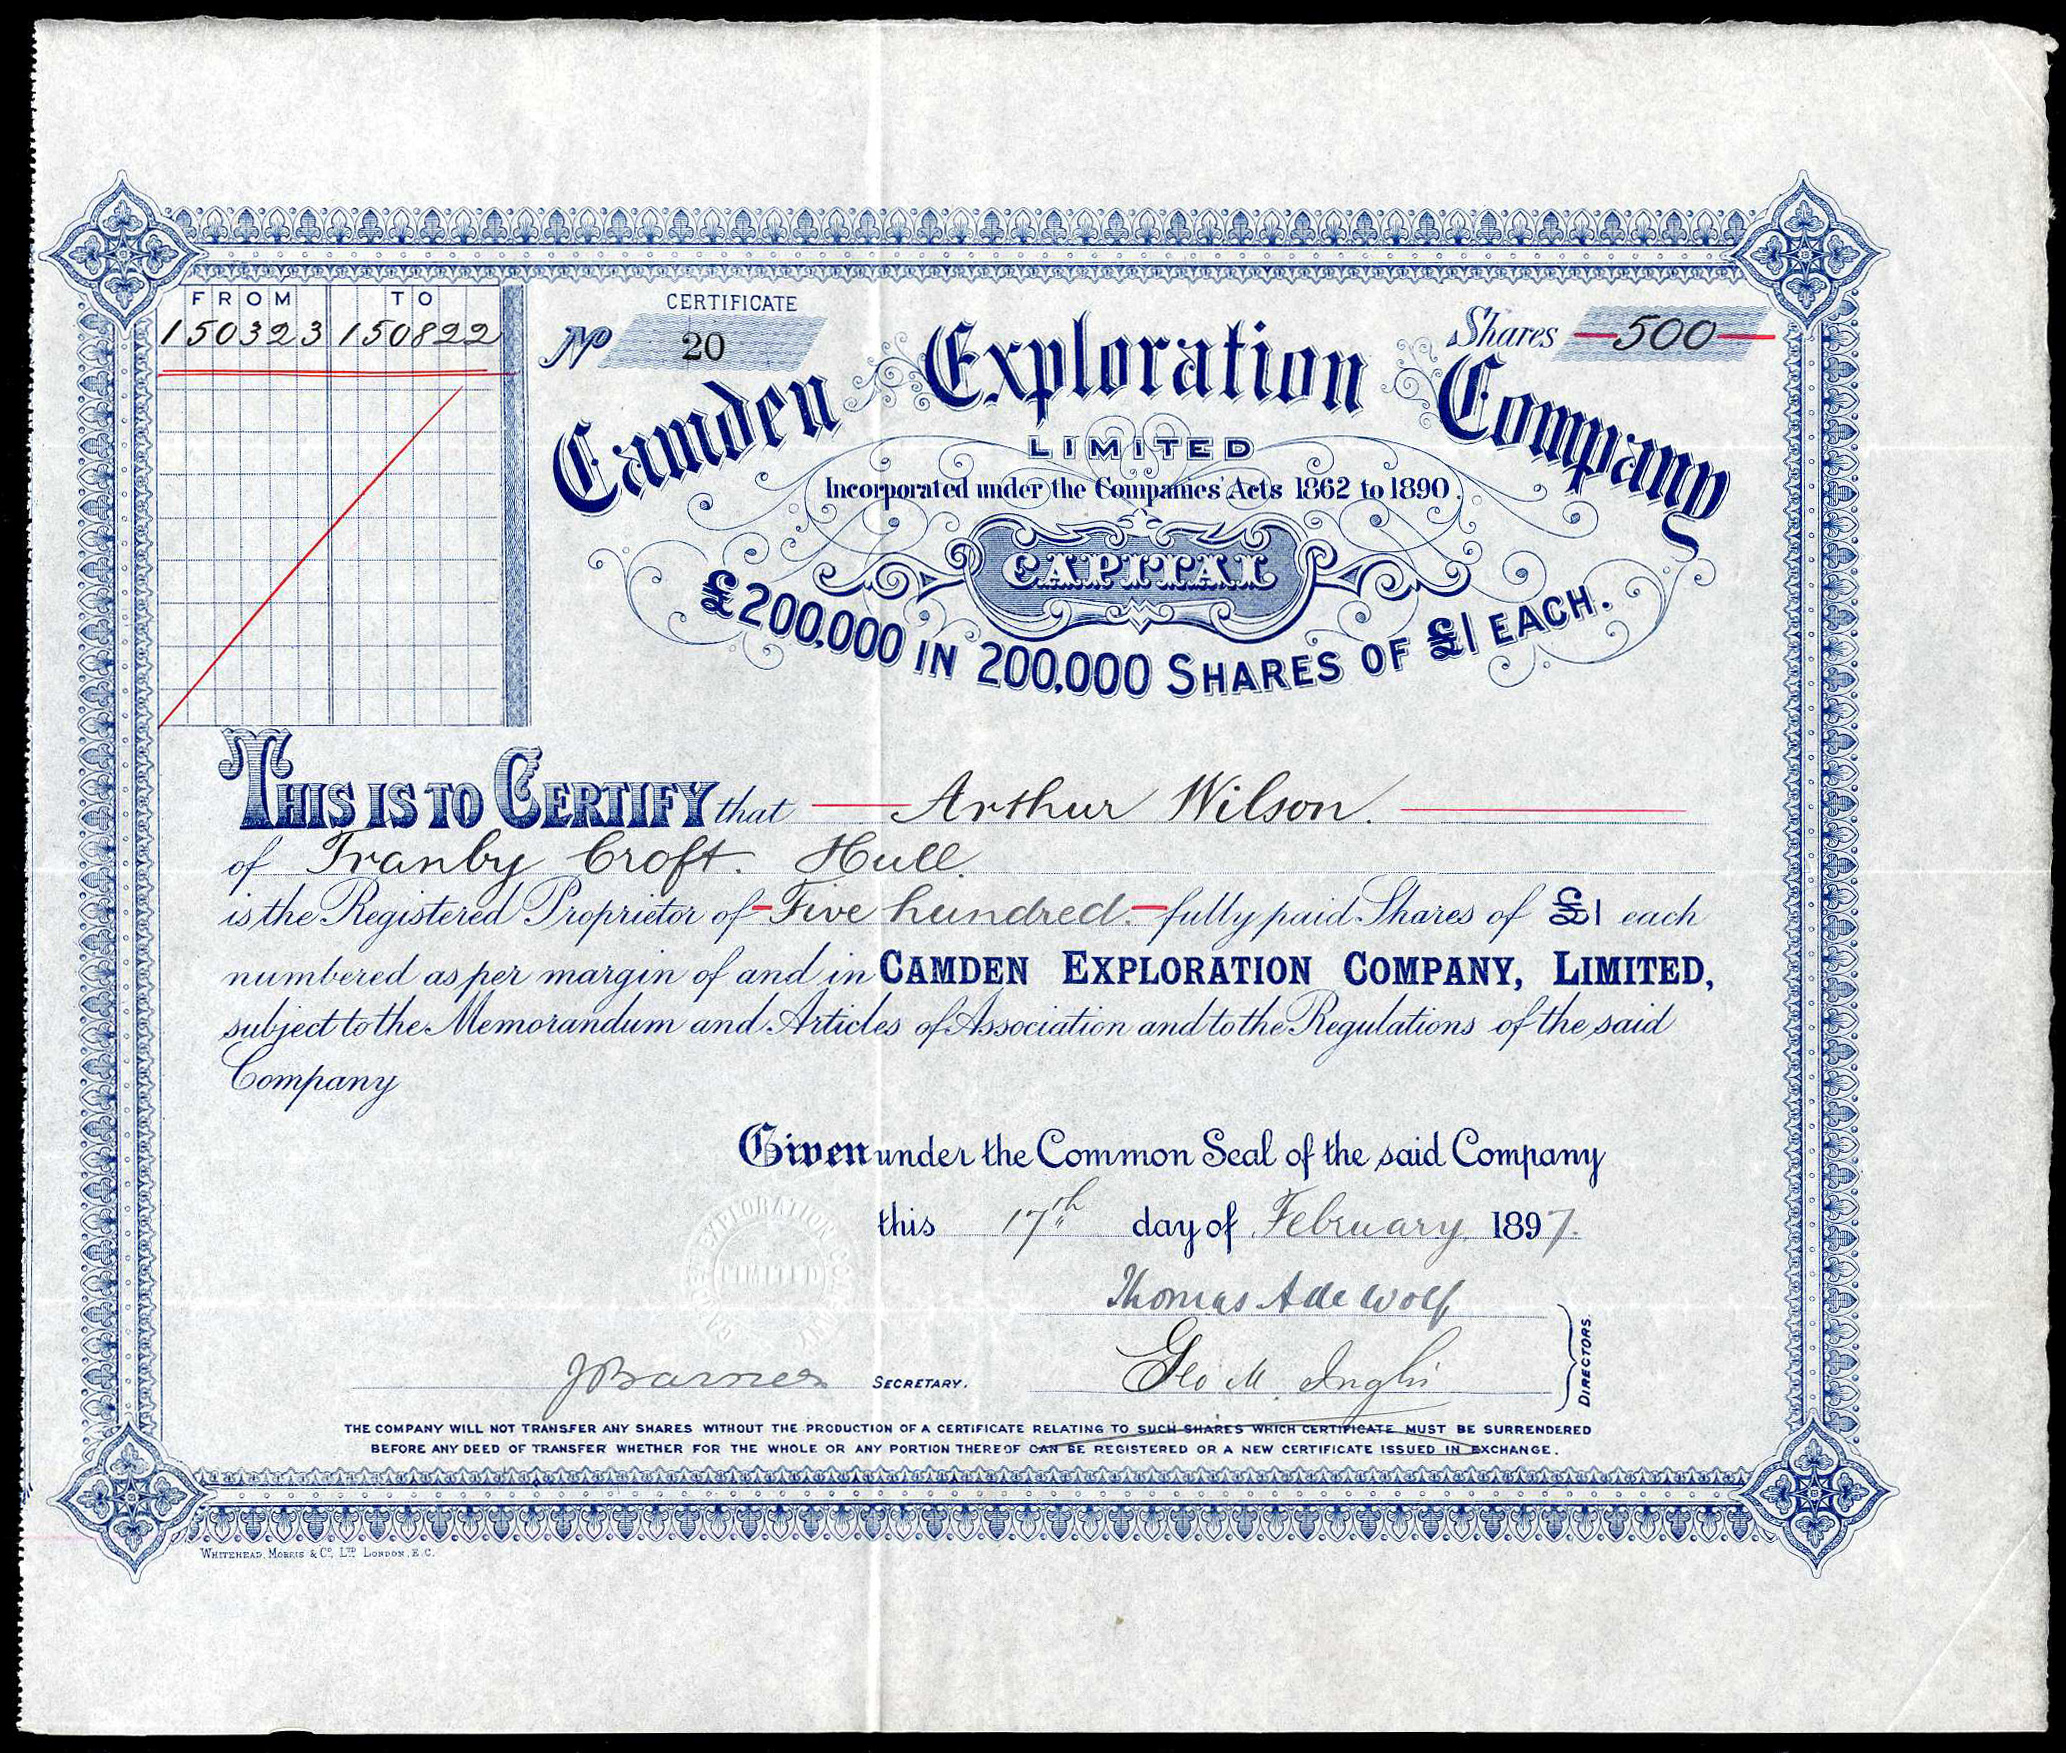 FROM TO
150323 150822
CERTIFICATE
No 20
Shares 500
Camden Exploration Company
LIMITED
Incorporated under the Companies' Acts 1862 to 1890.
CAPITAL
£200,000 IN 200,000 SHARES OF £1 EACH.
THIS IS TO CERTIFY that Arthur Wilson.
of Tranby Croft. Hull.
is the Registered Proprietor of Five hundred. fully paid Shares of £1 each
numbered as per margin of and in CAMDEN EXPLORATION COMPANY, LIMITED,
subject to the Memorandum and Articles of Association and to the Regulations of the said
Company
Given under the Common Seal of the said Company
this 17th day of February 1897.
EXPLORATION
LIMITED
Thomas A de Wolf
Geo M. Inglis
DIRECTORS.
J Barnes SECRETARY.
THE COMPANY WILL NOT TRANSFER ANY SHARES WITHOUT THE PRODUCTION OF A CERTIFICATE RELATING TO SUCH SHARES WHICH CERTIFICATE MUST BE SURRENDERED
BEFORE ANY DEED OF TRANSFER WHETHER FOR THE WHOLE OR ANY PORTION THEREOF CAN BE REGISTERED OR A NEW CERTIFICATE ISSUED IN EXCHANGE.
WHITEHEAD, MORRIS & Co., LTD LONDON, E.C.